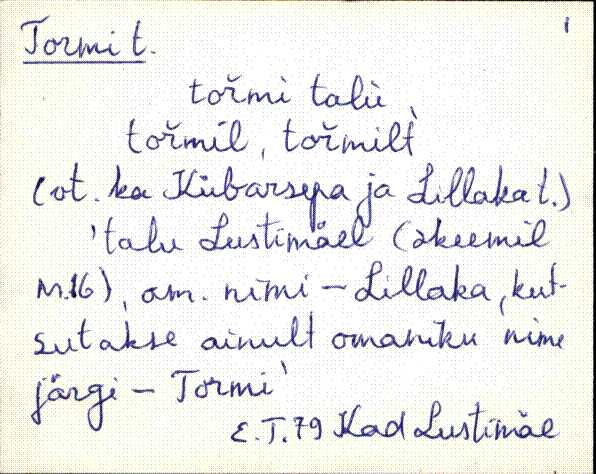 Tormi t. 1
toř̌mi talu
tořmil, tořmilt
(vt. ka Kübarsepa ja Lillaka t.)
'talu Lustimäel (skeemil
nr. 16), am. nimi – Lillaka, kut-
sutakse ainult omaniku nime
järgi – Tormi'
E.T. 79 Kad Lustimäe